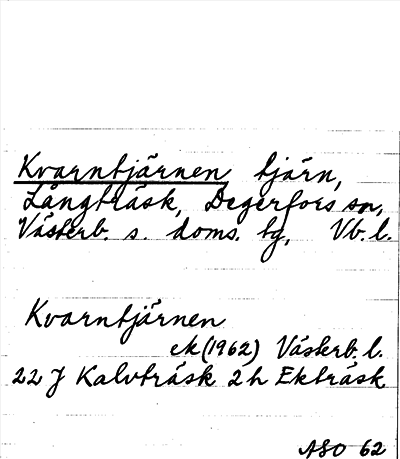 Kvarntjärnen tjärn,
Långträsk, Degerfors sn,
Västerb. s. doms. tg, Vb. l.
Kvarntjärnen
ek (1962) Västerb. l.
22 J Kalvträsk 2 h Ekträsk
ASO 62